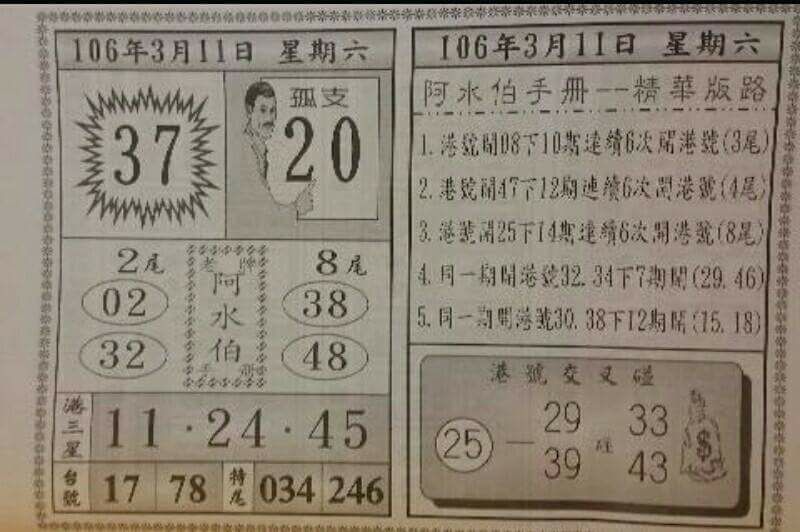 106年3月11日 星期六
37
孤支
20
2尾
8尾
老牌
阿水伯
手冊
02
32
38
48
港三星
11·24·45
台號
17 78
特尾
034 246
106年3月11日 星期六
阿水伯手冊--精華版路
1.港號開08下10期連續6次開港號(3尾)
2.港號開47下12期連續6次開港號(4尾)
3.港號開25下14期連續6次開港號(8尾)
4.同一期開港號32.34下7期開(29.46)
5.同一期開港號30.38下12期開(15.18)
港號交叉碰
25
29
39
33
43
$